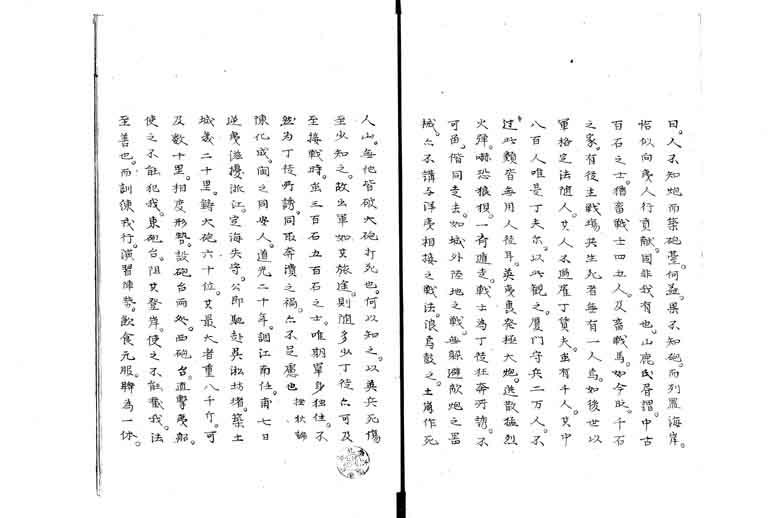 曰。人不知炮而築砲臺。何益。果不知砲。而列置海岸。
恰似向夷人行貢獻。國非我有也。山鹿氏嘗謂。中古
百石之士。猶畜戰士四五人。及畜戰馬。如今時。千石
之家。有從主戰場共生死者無有一人焉。如後世以
軍格定法隨人。其人不過雇丁賃夫。並有千人。其中
八百人唯是丁夫尓。以此觀之。厦門守兵二万人。不
過此類皆無用人径耳。英夷裏発極大炮。迸散猛烈
火彈。嚇恐狼狽。一斉遁走。戰士為丁徒狂奔所誘。不
可免。偕同走去。如城外陸地之戰。無躲避敵炮之畾
城。亦不講与洋夷相接之戰法。浪為敵之土崩作死
人山。無他皆破大砲打死也。何以知之。以英兵死傷
至少知之。故出軍如其旅途。則隨多少丁徒。亦可及
至接戰時。並三百石五百石之士。唯期單身独住。不
然為丁徒所誘。同取奔潰之禍。亦不足慮也
陳化成。閩之同安人。道光二十年。調江南任。甫七日
逆夷滋擾浙江。定海失守。公即馳赴吳淞坊堵。築土
城幾二十里。鋳火砲六十位。其最大者重八千斤。可
及数十里。相度形勢。設砲台兩処。西砲台。直擊夷船。
使之不能犯我。東砲台。阻其登岸。使之不能截我。法
至善也。而訓練戎行。演習陣勢。飲食元服。聯為一体。